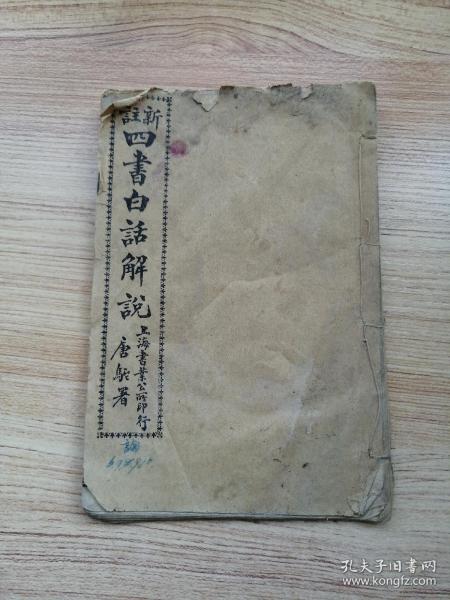 新註
四書白話解說
上海書業公所印行
唐駝署
論
6 7 8 9 10
孔夫子旧书网
www.kongfz.com